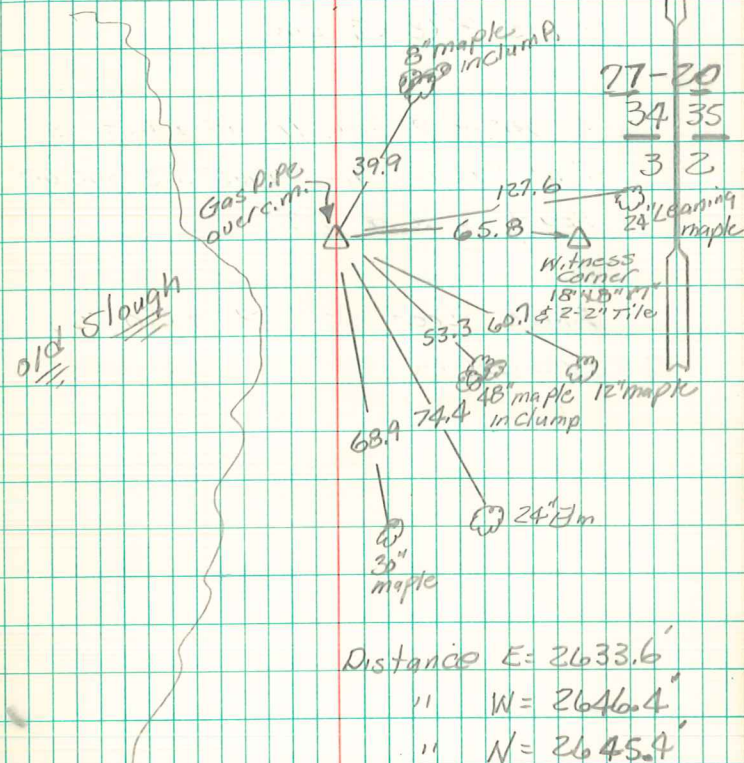 8" maple
in clump.
77-20
34 35
3 2
39.9
Gas pipe
over c.m.
127.6
24" Leaning
maple
65.8
Witness
Corner
& 2-2" Tile
old Slough
53.3
60.7
48" maple
in clump
12" maple
68.9
74.4
24" Elm
30"
maple
Distance E= 2633.6'
" W= 2646.4'
" N= 2645.4'